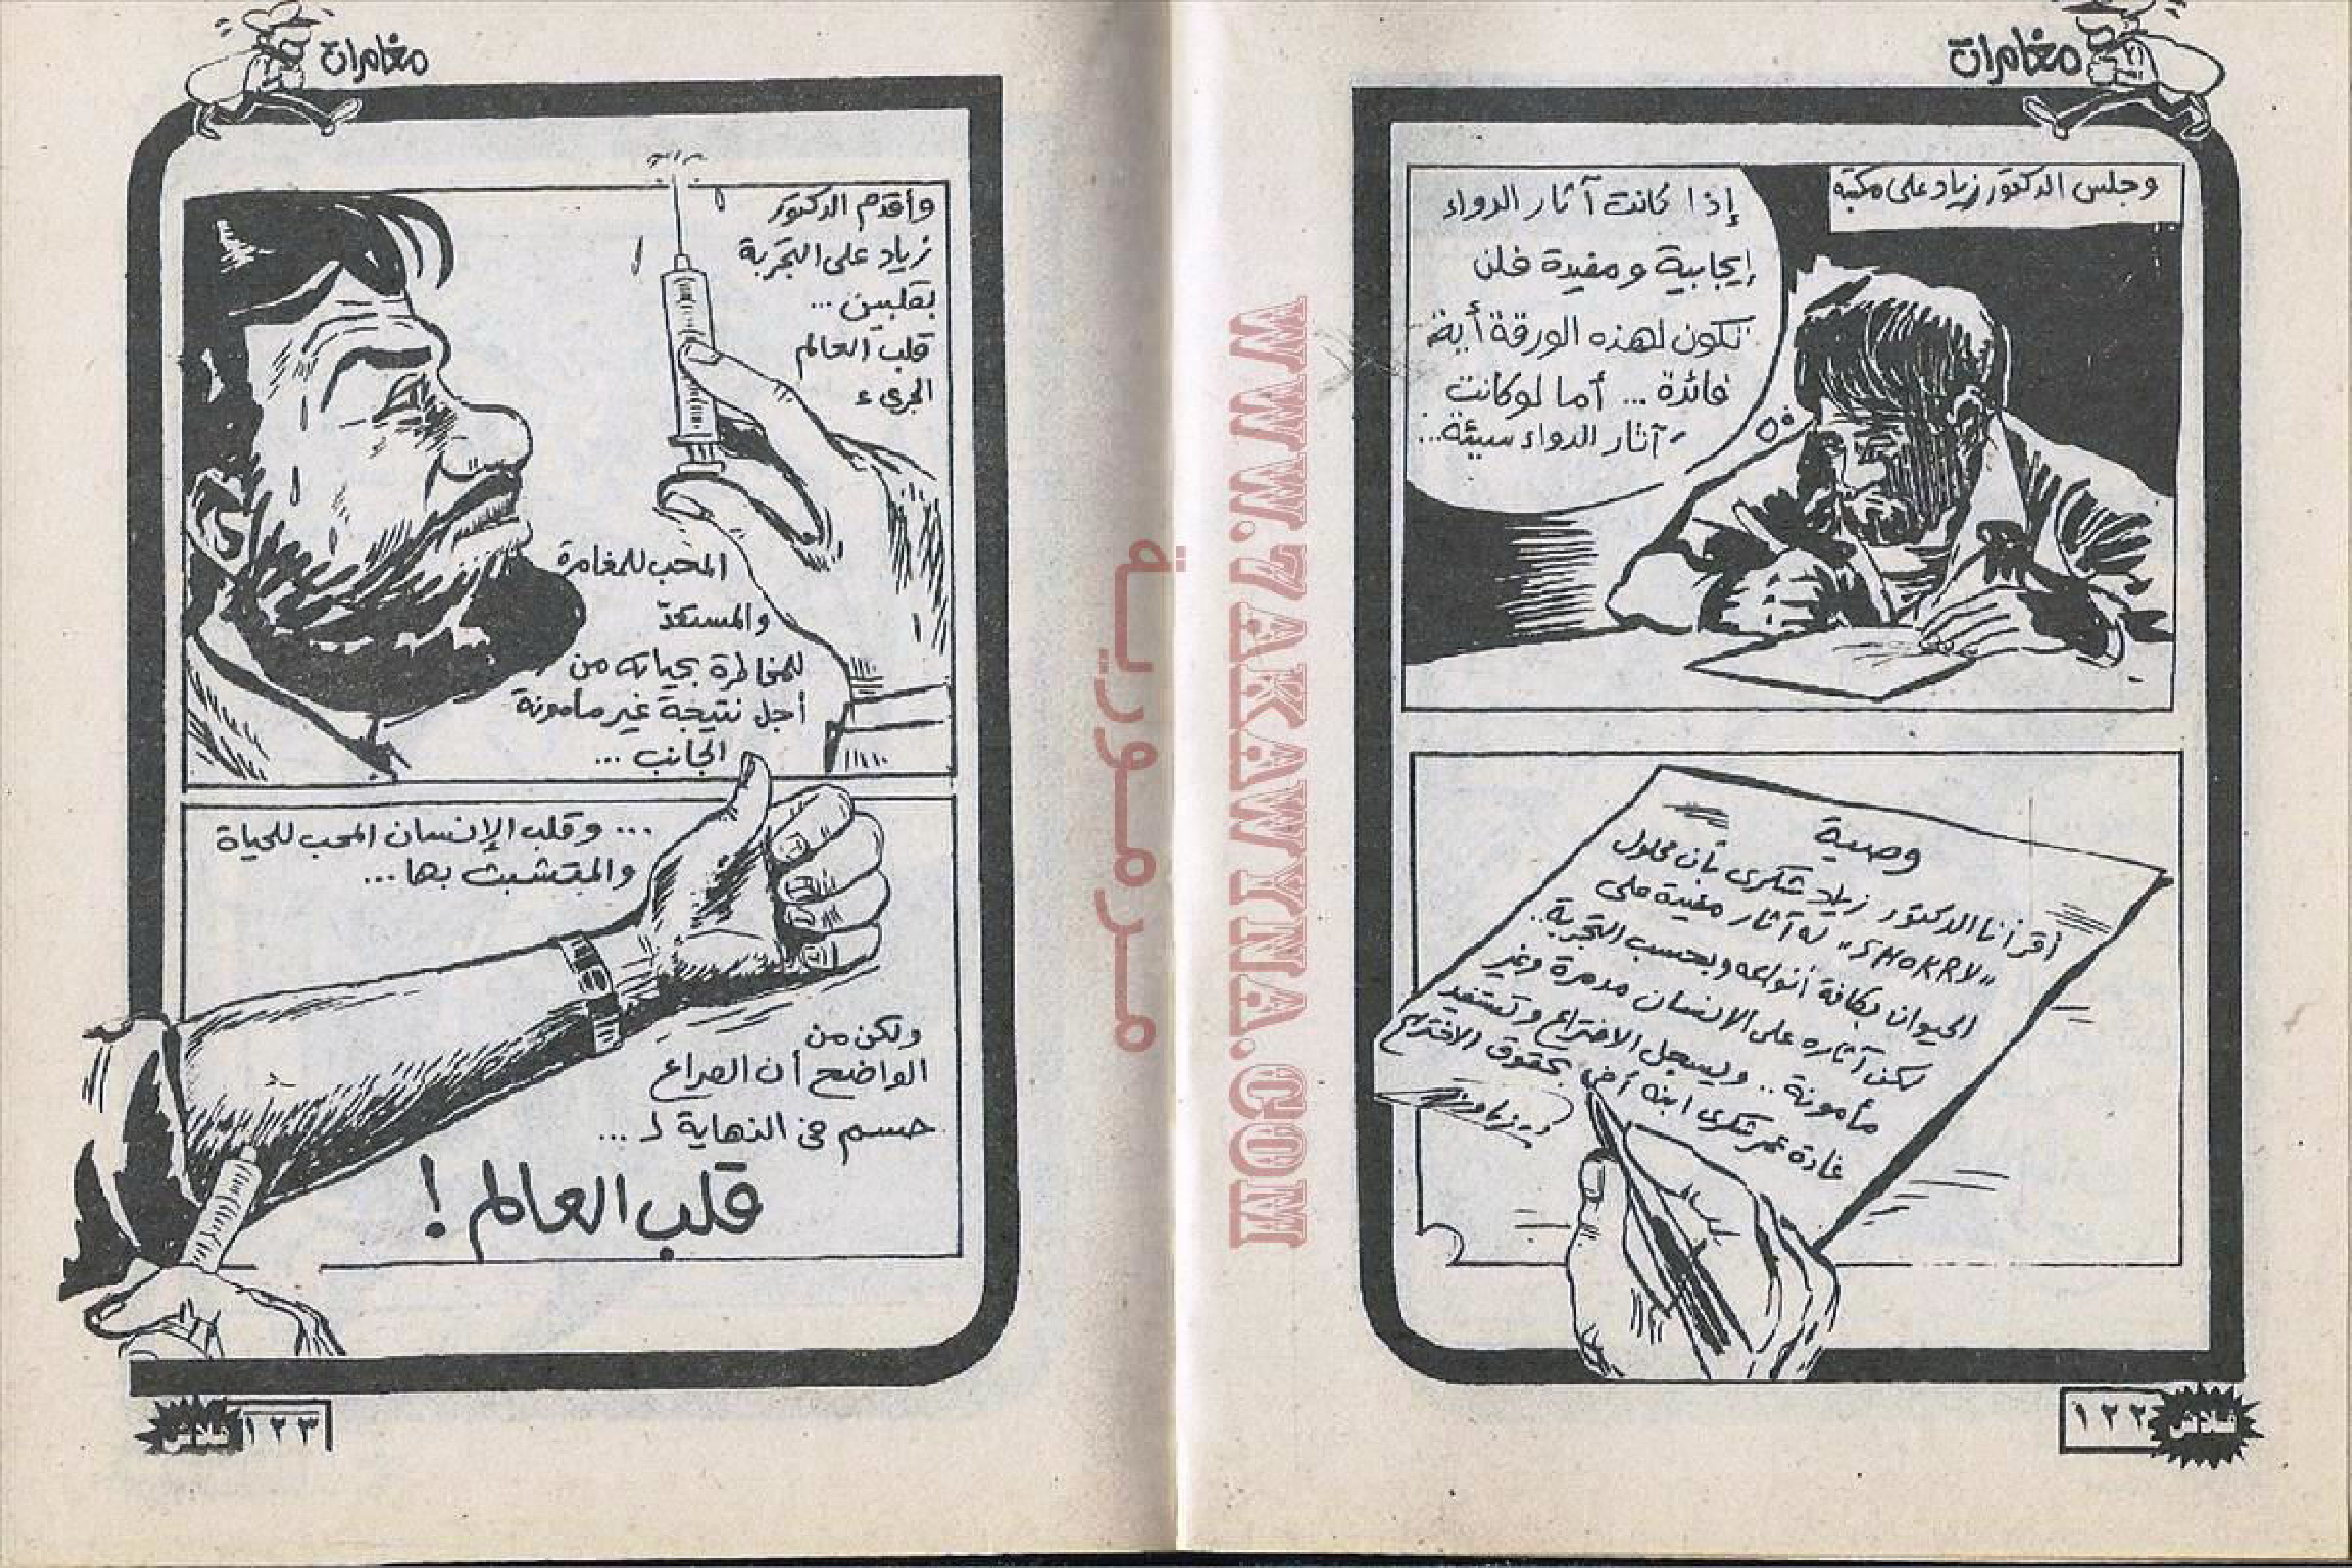 مغامرات
وجلس الدكتور زياد على مكتبه
إذا كانت آثار الدواء
إيجابية ومفيدة فلن
تكون لهذه الورقة أية
فائدة ... أما لو كانت
آثار الدواء سيئة...
وصية
أقر أنا الدكتور زياد شكرى بأن محلول
"SHOKRY" له آثار مفيدة على
الحيوان بكافة أنواعه وبحسب التجربة..
لكن آثاره على الإنسان مدمرة وغير
مأمونة .. ويسجل الاختراع وتستفيد
غادة عمر شكرى ابنة أخى بحقوق الاختراع
فلاش
١٢٢
WWW.7AKAWYNA.COM
مرمورية
مغامرات
وأقدم الدكتور
زياد على التجربة
بقلبين ...
قلب العالم
الجرىء
المحب للمغامرة
والمستعدّ
للمخاطرة بحياته من
أجل نتيجة غير مأمونة
الجانب ...
... وقلب الإنسان المحب للحياة
والمتشبث بها ...
ولكن من
الواضح أن الصراع
حسم فى النهاية لـ ...
قلب العالم !
١٢٣
فلاش